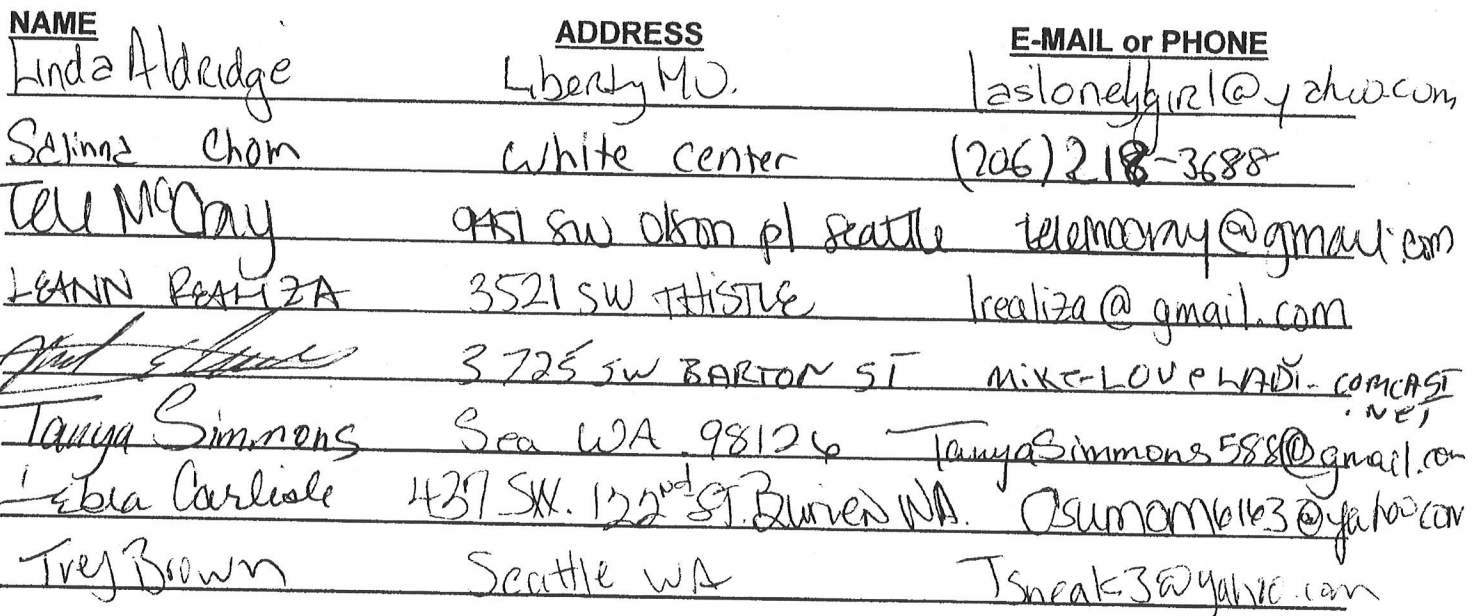 NAME ADDRESS E-MAIL or PHONE
Linda Aldridge Liberty MO. lasloneygirl@yahoo.com
Salinna Chom White Center (206) 218-3688
Tele McCray 9451 SW Olson pl Seattle telemccray@gmail.com
LEANN REALIZA 3521 SW THISTLE lrealiza@gmail.com
3725 SW BARTON ST COMCAST
.NET
Tanya Simmons Sea WA 98126 TanyaSimmons588@gmail.com
Carlisle 437 SW. 122nd St. Burien WA. Osumom6163@yahoo.com
Trey Brown Seattle WA Tsneak3@yahoo.com